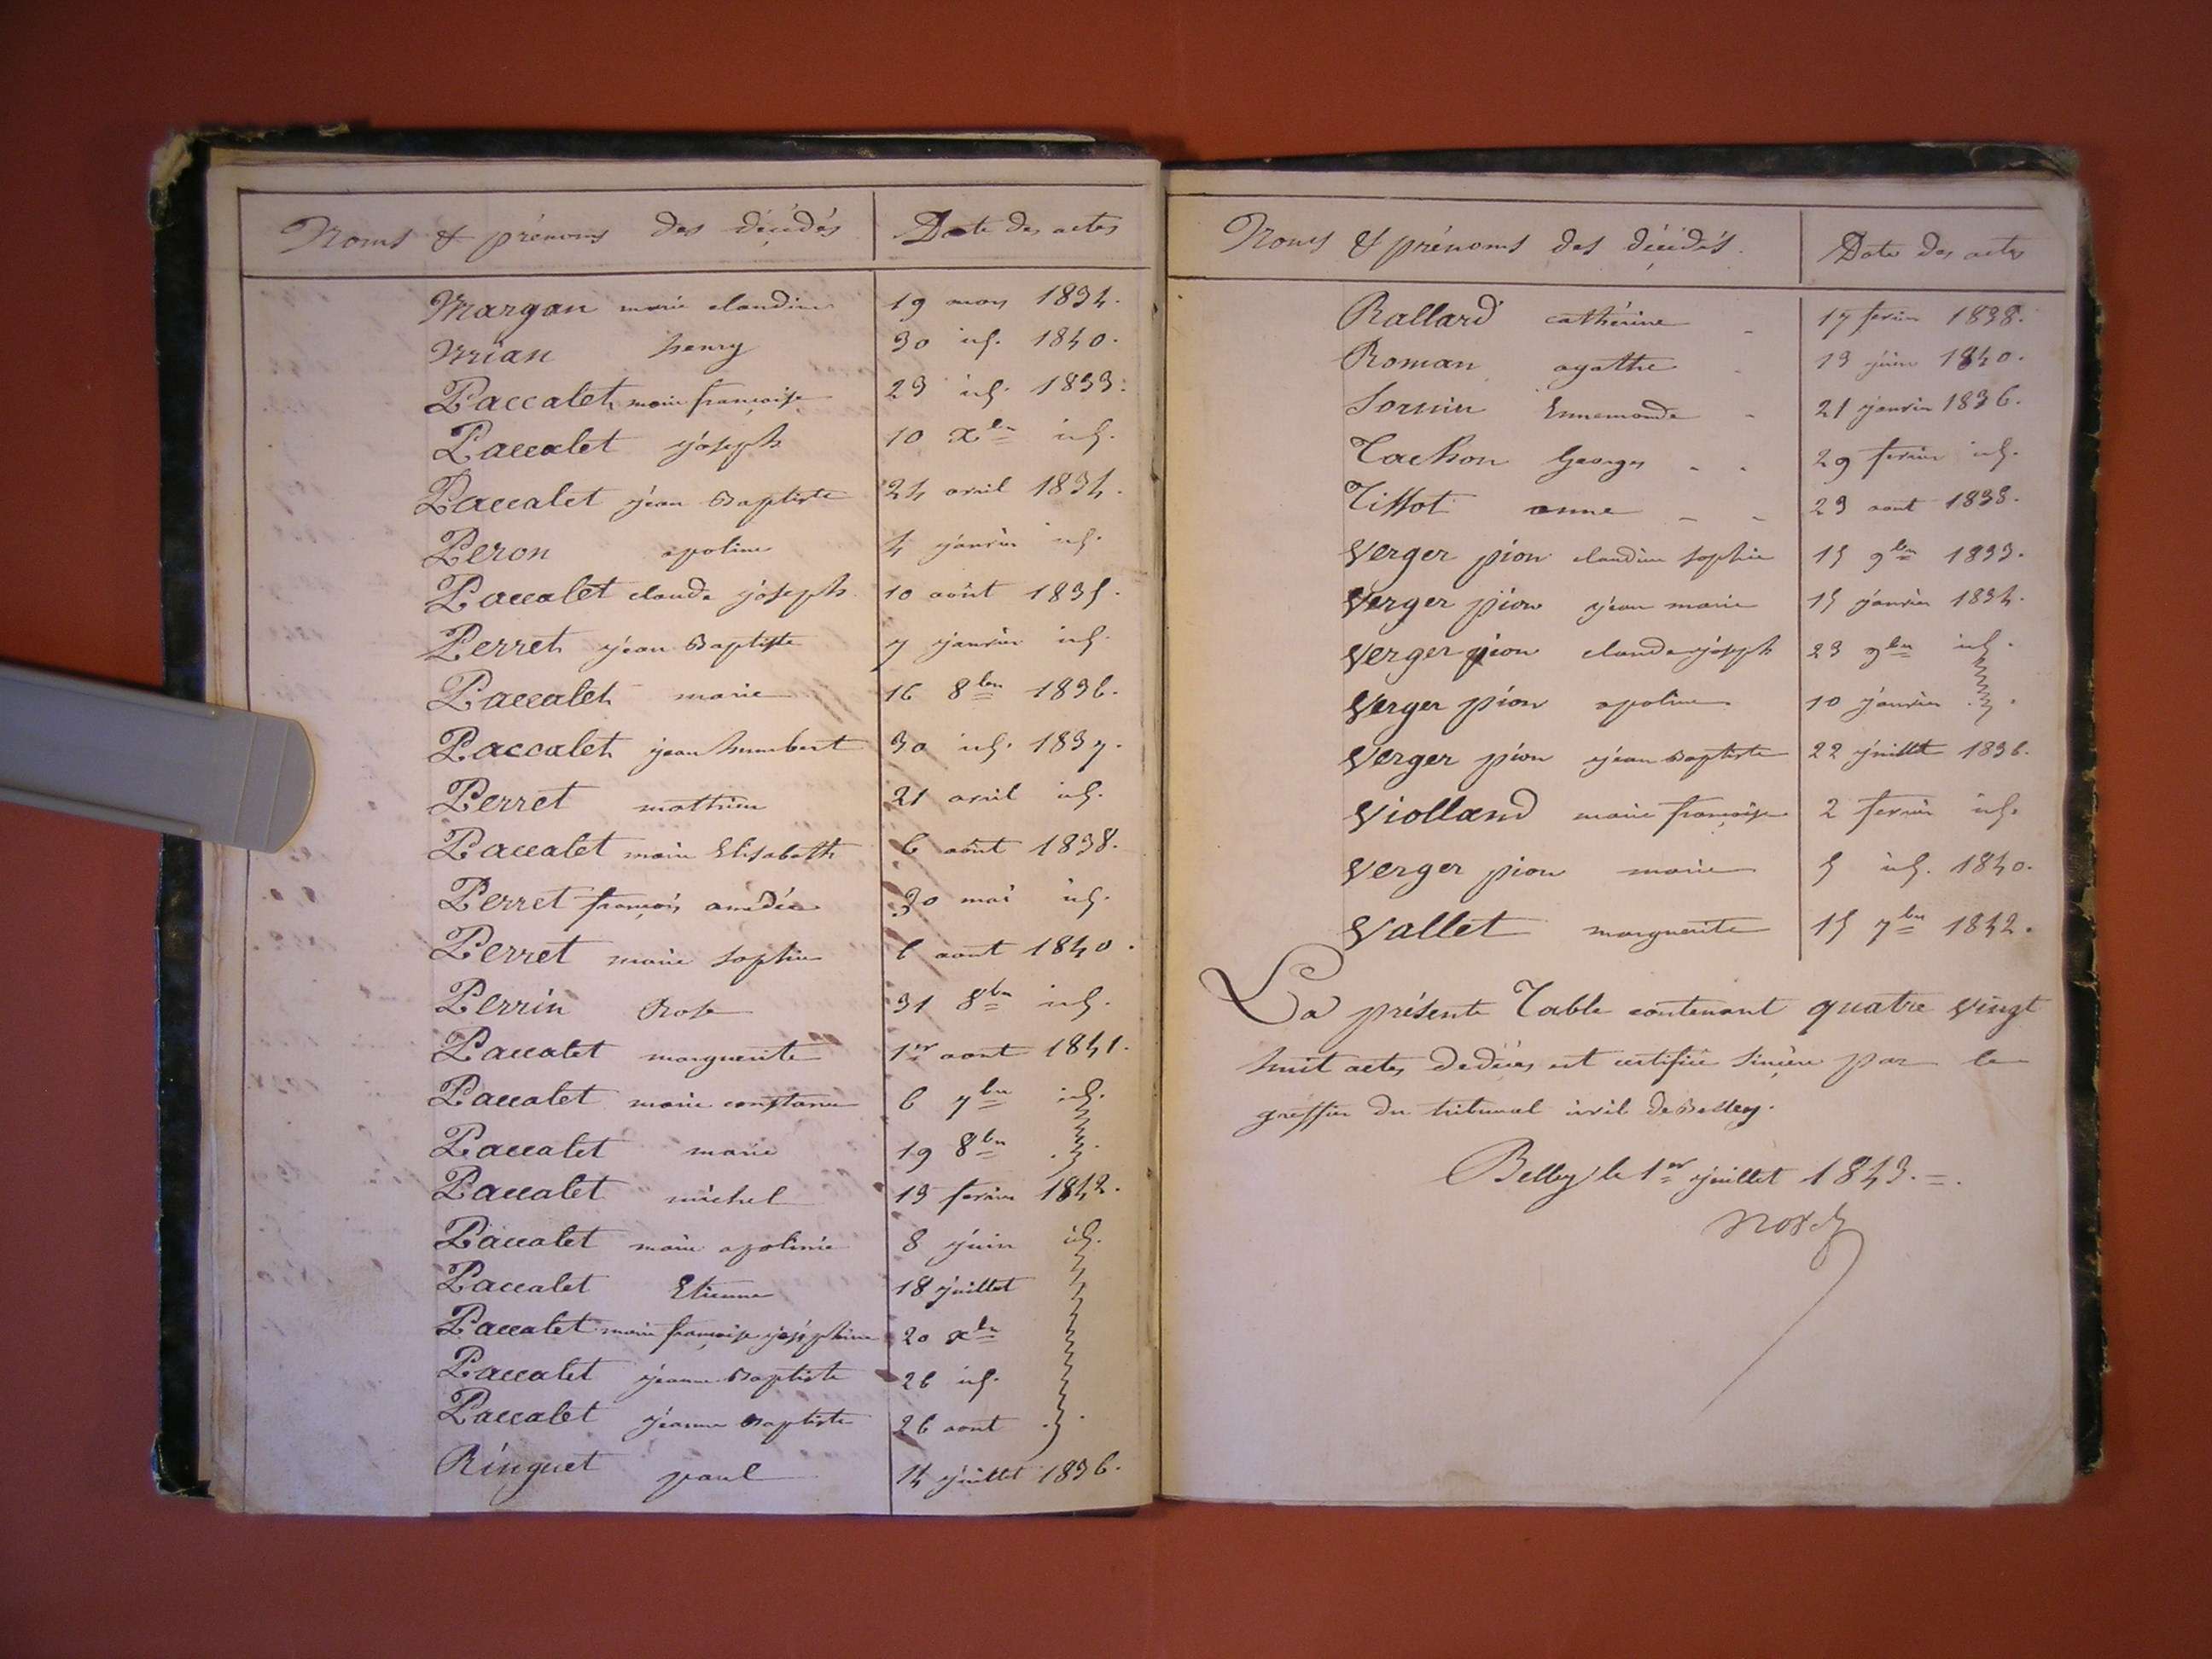 Noms & prénoms des décédés Date des actes
Margan marie claudine 19 mars 1834.
henry 30 id. 1840.
Paccalet marie françoise 23 id. 1833.
Paccalet joseph 10 xbre id.
Paccalet jean Baptiste 24 avril 1834.
Peron apoline 4 janvier id.
Paccalet claude joseph 10 août 1835.
Perret jean Baptiste 7 janvier id.
Paccalet marie 16 8bre 1836.
Paccalet jean humbert 30 id. 1837.
Perret mathieu 21 avril id.
Paccalet marie Elisabeth 6 août 1838.
Perret françois amédée 30 mai id.
Perret marie sophie 6 aout 1840.
Perrin Rose 31 8bre id.
Paccalet marguerite 1er aout 1841.
Paccalet marie constance 6 7bre id.
Paccalet marie 19 8bre
Paccalet michel 13 fevrier 1842.
Paccalet marie apolinie 8 juin id.
Paccalet Etienne 18 juillet
Paccalet marie françoise joséphine 20 xbre
Paccalet jeanne Baptiste 26 id.
Paccalet jeanne Baptiste 26 aout
Ringuet paul 14 juillet 1836.
Noms & prénoms des décédés. Date des actes
Rallard catherine 17 fevrier 1838.
Roman agathe 13 juin 1840.
Sornin Ennemonde 21 janvier 1836.
Tachon Georges 29 fevrier id.
Tissot anne 23 aout 1838.
Verger pion claudine sophie 15 9bre 1833.
Verger pion jean marie 15 janvier 1834.
Verger pion claude joseph 23 9bre id.
Verger pion apoline 10 janvier
Verger pion jean Baptiste 22 juillet 1836.
Violland marie françoise 2 fevrier id.
Verger pion marie 5 id. 1840.
Vallet marguerite 15 7bre 1842.
La présente Table contenant quatre vingt
huit actes de décès est certifiée sincère par le
greffier du tribunal civil de Belley.
Belley le 1er juillet 1843.